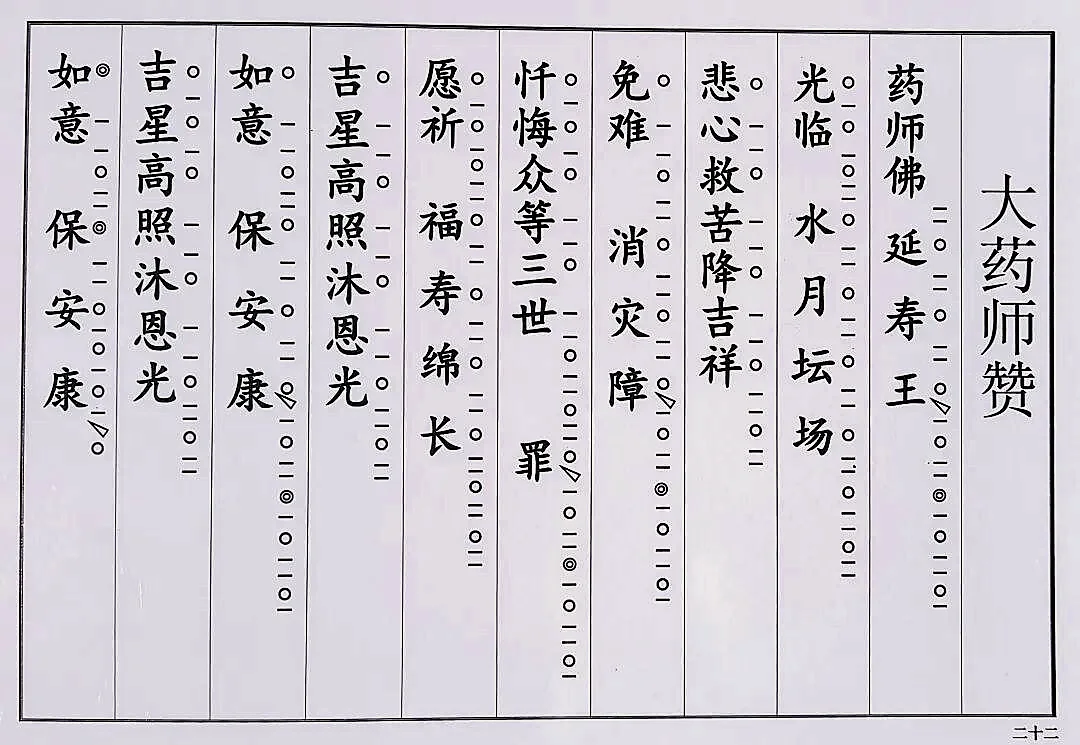 大药师赞
药师佛延寿王
光临水月坛场
悲心救苦降吉祥
免难消灾障
忏悔众等三世罪
愿祈福寿绵长
吉星高照沐恩光
如意保安康
吉星高照沐恩光
如意保安康
二十二